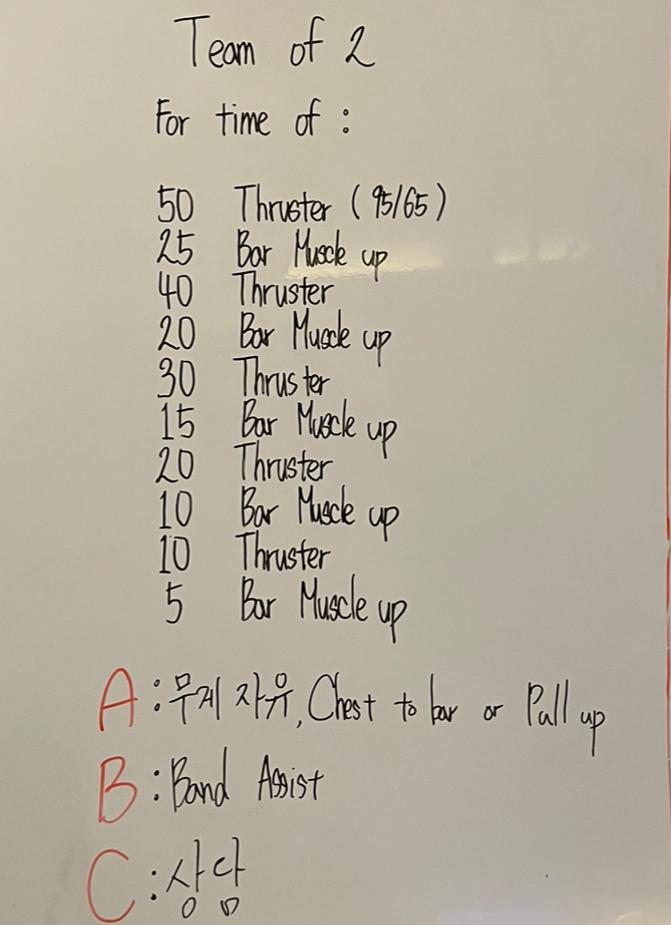 Team of 2
For time of :
50 Thruster (95/65)
25 Bar Muscle up
40 Thruster
20 Bar Muscle up
30 Thruster
15 Bar Muscle up
20 Thruster
10 Bar Muscle up
10 Thruster
5 Bar Muscle up
A : 무게 자유, Chest to bar or Pull up
B : Band Assist
C : 상담